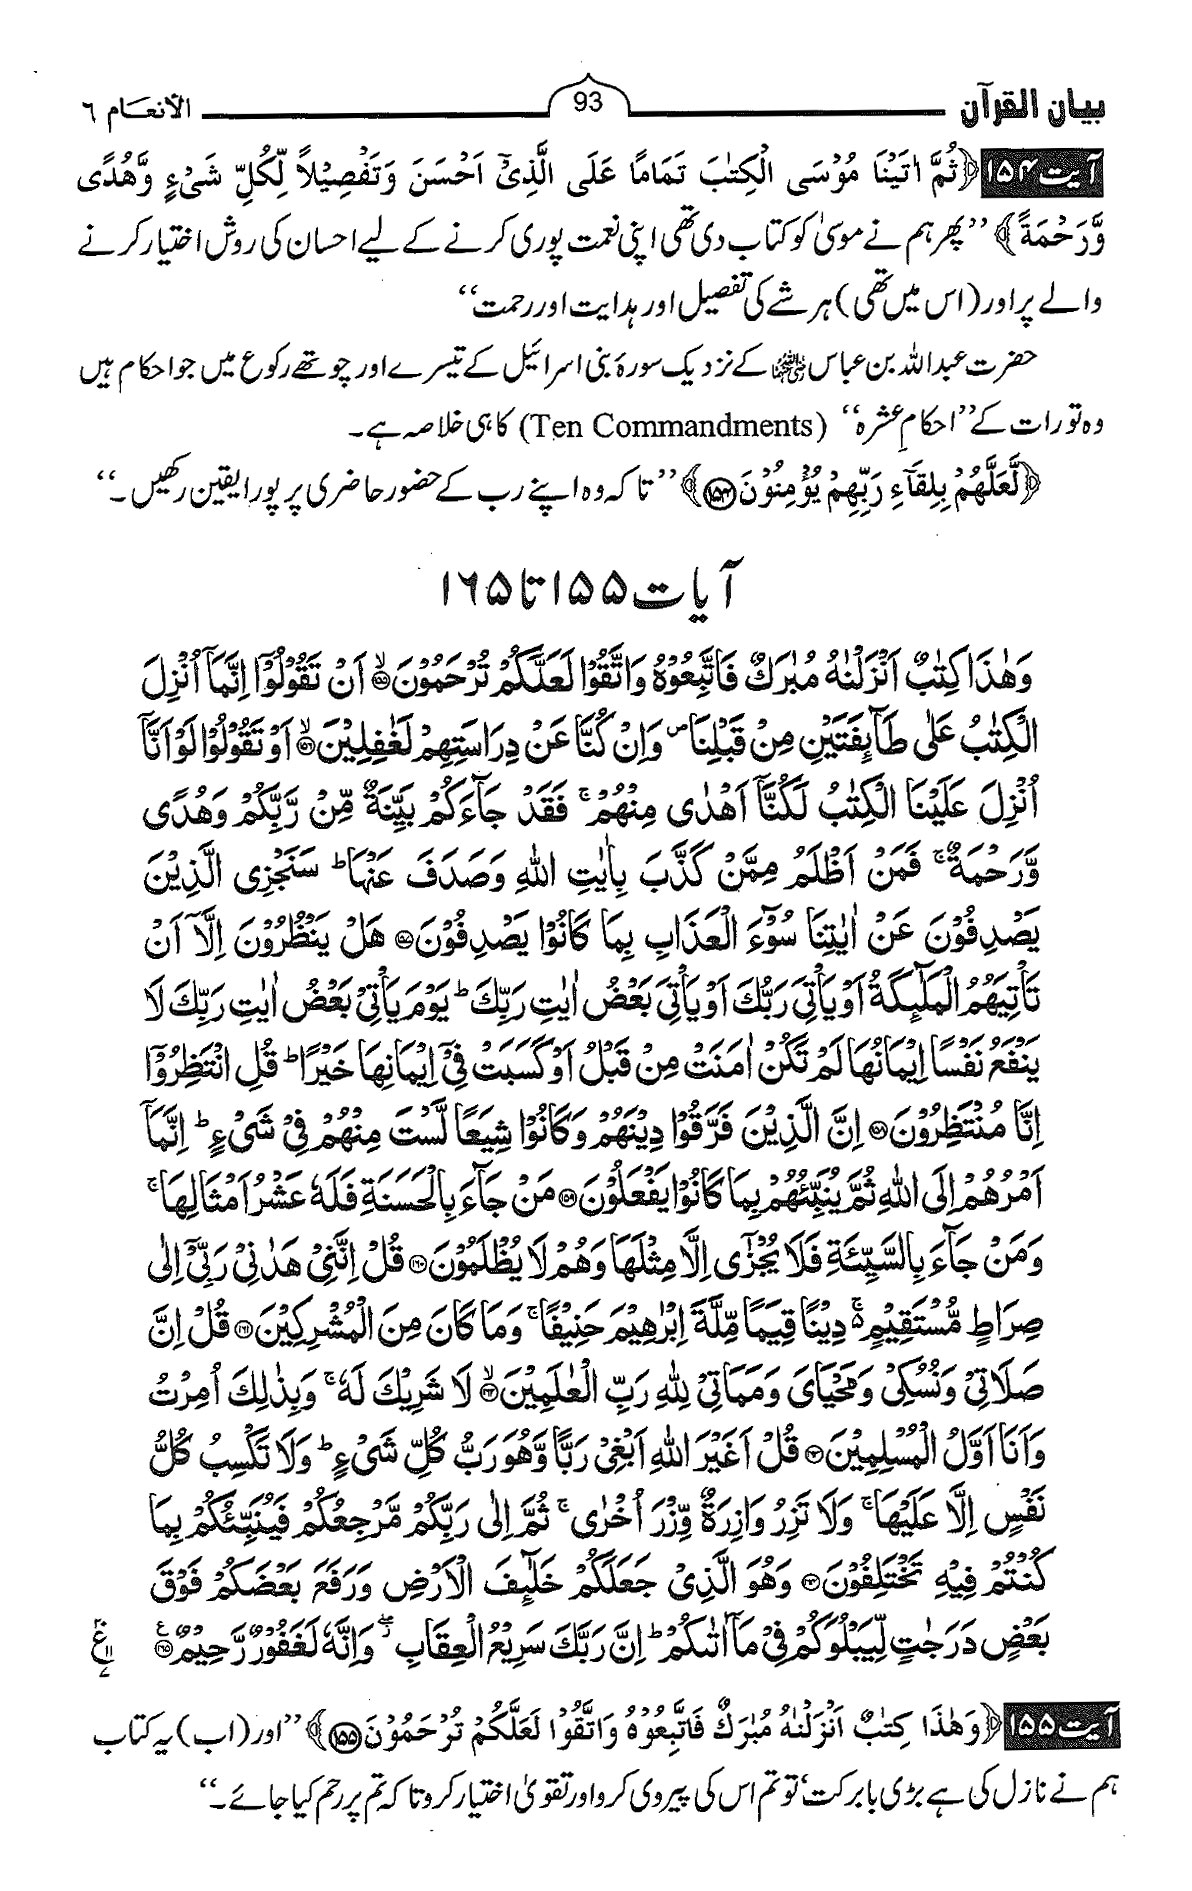 بیان القرآن 93 الانعام ٦
آیت ۱۵۴ ﴿ثُمَّ اٰتَیْنَا مُوْسَی الْكِتٰبَ تَمَامًا عَلَی الَّذِیْۤ اَحْسَنَ وَتَفْصِیْلًا لِّكُلِّ شَیْءٍ وَّهُدًی
وَّرَحْمَةً﴾ ’’پھر ہم نے موسیٰ کو کتاب دی تھی اپنی نعمت پوری کرنے کے لیے احسان کی روش اختیار کرنے
والے پر اور (اس میں تھی) ہر شے کی تفصیل اور ہدایت اور رحمت‘‘
حضرت عبداللہ بن عباس رضی اللہ عنہما کے نزدیک سورۂ بنی اسرائیل کے تیسرے اور چوتھے رکوع میں جو احکام ہیں
وہ تورات کے ’’احکامِ عشرہ‘‘ (Ten Commandments) کا ہی خلاصہ ہے۔
﴿لَّعَلَّهُمْ بِلِقَآءِ رَبِّهِمْ یُؤْمِنُوْنَ ۱۵۴﴾ ’’تاکہ وہ اپنے رب کے حضور حاضری پر پورا یقین رکھیں۔‘‘
آیات ۱۵۵ تا ۱۶۵
وَهٰذَا كِتٰبٌ اَنْزَلْنٰهُ مُبٰرَكٌ فَاتَّبِعُوْهُ وَاتَّقُوْا لَعَلَّكُمْ تُرْحَمُوْنَ ۱۵۵ۙ اَنْ تَقُوْلُوْۤا اِنَّمَاۤ اُنْزِلَ
الْكِتٰبُ عَلٰی طَآىِٕفَتَیْنِ مِنْ قَبْلِنَا ۪ وَاِنْ كُنَّا عَنْ دِرَاسَتِهِمْ لَغٰفِلِیْنَ ۱۵۶ۙ اَوْ تَقُوْلُوْا لَوْ اَنَّاۤ
اُنْزِلَ عَلَیْنَا الْكِتٰبُ لَكُنَّاۤ اَهْدٰی مِنْهُمْ ۚ فَقَدْ جَآءَكُمْ بَیِّنَةٌ مِّنْ رَّبِّكُمْ وَهُدًی
وَّرَحْمَةٌ ۚ فَمَنْ اَظْلَمُ مِمَّنْ كَذَّبَ بِاٰیٰتِ اللّٰهِ وَصَدَفَ عَنْهَا ؕ سَنَجْزِی الَّذِیْنَ
یَصْدِفُوْنَ عَنْ اٰیٰتِنَا سُوْٓءَ الْعَذَابِ بِمَا كَانُوْا یَصْدِفُوْنَ ۱۵۷ هَلْ یَنْظُرُوْنَ اِلَّاۤ اَنْ
تَاْتِیَهُمُ الْمَلٰٓىِٕكَةُ اَوْ یَاْتِیَ رَبُّكَ اَوْ یَاْتِیَ بَعْضُ اٰیٰتِ رَبِّكَ ؕ یَوْمَ یَاْتِیْ بَعْضُ اٰیٰتِ رَبِّكَ لَا
یَنْفَعُ نَفْسًا اِیْمَانُهَا لَمْ تَكُنْ اٰمَنَتْ مِنْ قَبْلُ اَوْ كَسَبَتْ فِیْۤ اِیْمَانِهَا خَیْرًا ؕ قُلِ انْتَظِرُوْۤا
اِنَّا مُنْتَظِرُوْنَ ۱۵۸ اِنَّ الَّذِیْنَ فَرَّقُوْا دِیْنَهُمْ وَكَانُوْا شِیَعًا لَّسْتَ مِنْهُمْ فِیْ شَیْءٍ ؕ اِنَّمَاۤ
اَمْرُهُمْ اِلَی اللّٰهِ ثُمَّ یُنَبِّئُهُمْ بِمَا كَانُوْا یَفْعَلُوْنَ ۱۵۹ مَنْ جَآءَ بِالْحَسَنَةِ فَلَهٗ عَشْرُ اَمْثَالِهَا ۚ
وَمَنْ جَآءَ بِالسَّیِّئَةِ فَلَا یُجْزٰۤی اِلَّا مِثْلَهَا وَهُمْ لَا یُظْلَمُوْنَ ۱۶۰ قُلْ اِنَّنِیْ هَدٰىنِیْ رَبِّیْۤ اِلٰی
صِرَاطٍ مُّسْتَقِیْمٍ ۚ۬ دِیْنًا قِیَمًا مِّلَّةَ اِبْرٰهِیْمَ حَنِیْفًا ۚ وَمَا كَانَ مِنَ الْمُشْرِكِیْنَ ۱۶۱ قُلْ اِنَّ
صَلَاتِیْ وَنُسُكِیْ وَمَحْیَایَ وَمَمَاتِیْ لِلّٰهِ رَبِّ الْعٰلَمِیْنَ ۱۶۲ۙ لَا شَرِیْكَ لَهٗ ۚ وَبِذٰلِكَ اُمِرْتُ
وَاَنَا اَوَّلُ الْمُسْلِمِیْنَ ۱۶۳ قُلْ اَغَیْرَ اللّٰهِ اَبْغِیْ رَبًّا وَّهُوَ رَبُّ كُلِّ شَیْءٍ ؕ وَلَا تَكْسِبُ كُلُّ
نَفْسٍ اِلَّا عَلَیْهَا ۚ وَلَا تَزِرُ وَازِرَةٌ وِّزْرَ اُخْرٰی ۚ ثُمَّ اِلٰی رَبِّكُمْ مَّرْجِعُكُمْ فَیُنَبِّئُكُمْ بِمَا
كُنْتُمْ فِیْهِ تَخْتَلِفُوْنَ ۱۶۴ وَهُوَ الَّذِیْ جَعَلَكُمْ خَلٰٓىِٕفَ الْاَرْضِ وَرَفَعَ بَعْضَكُمْ فَوْقَ
بَعْضٍ دَرَجٰتٍ لِّیَبْلُوَكُمْ فِیْ مَاۤ اٰتٰىكُمْ ؕ اِنَّ رَبَّكَ سَرِیْعُ الْعِقَابِ ۖؗ وَاِنَّهٗ لَغَفُوْرٌ رَّحِیْمٌ ۱۶۵
آیت ۱۵۵ ﴿وَهٰذَا كِتٰبٌ اَنْزَلْنٰهُ مُبٰرَكٌ فَاتَّبِعُوْهُ وَاتَّقُوْا لَعَلَّكُمْ تُرْحَمُوْنَ ۱۵۵﴾ ’’اور (اب) یہ کتاب
ہم نے نازل کی ہے بڑی بابرکت‘ تو تم اس کی پیروی کرو اور تقویٰ اختیار کرو تاکہ تم پر رحم کیا جائے۔‘‘